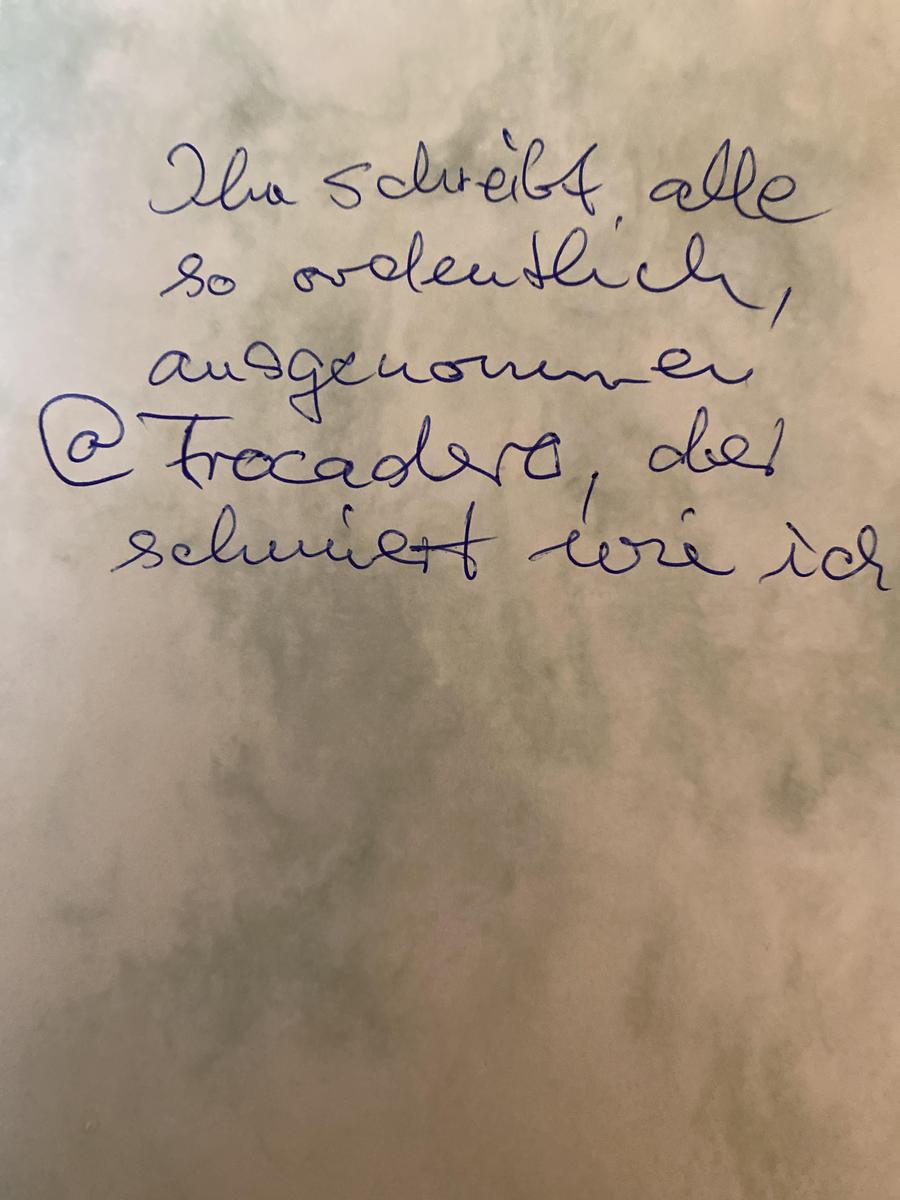 Ihr schreibt alle
so ordentlich,
ausgenommen
@Trocadero, der
schmiert wie ich